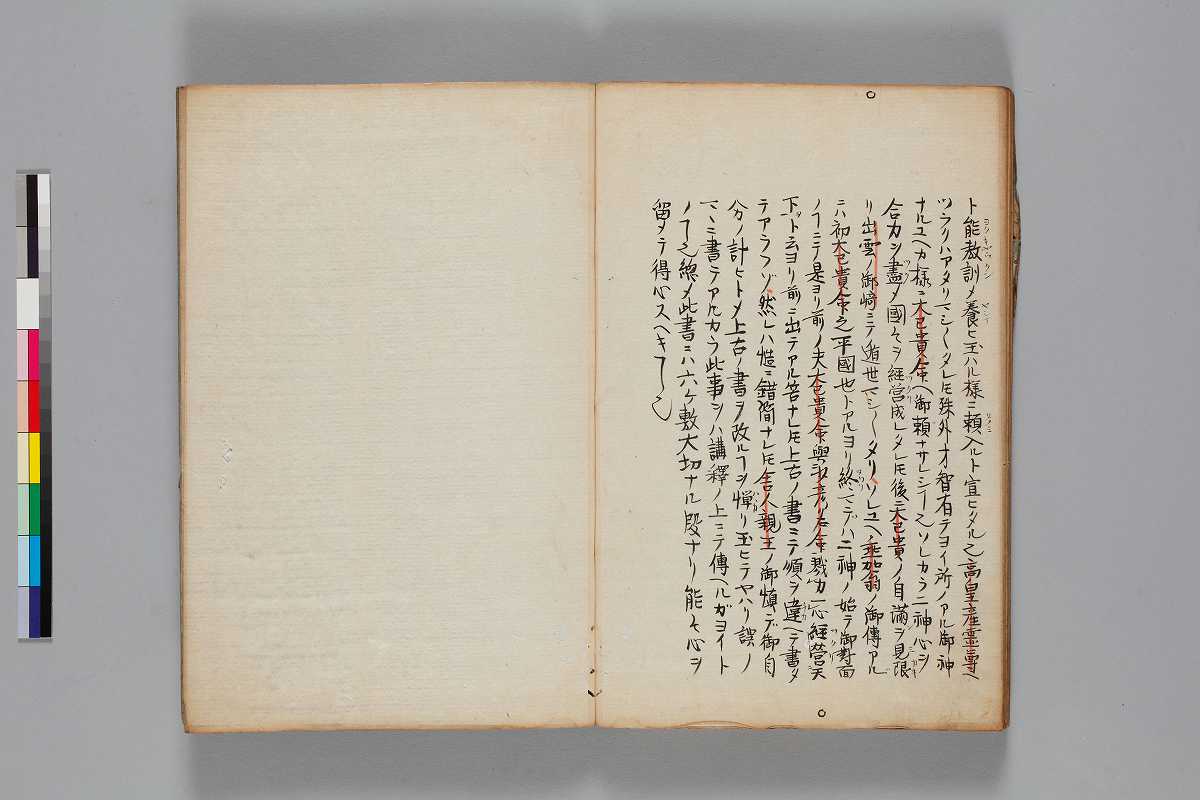 ト能教訓〆養ヒ玉ハル様ニ頼入ルト宣ヒタル之高皇産霊尊ヘ
ツラリハアタリマシ〱タレ𪜈殊外才智有テヨイ所ノアル御神
ナルユヘカ様ニ大己貴命ヘ御頼ナサレシ之ソレカラ二神心ヲ
合カシ盡〆國々ヲ経営成レタレ𪜈後ニ大己貴ノ自満ヲ見限
リ出雲ノ御﨑ニテノ遁世マシ〱タリソレユヘノ御傳アル
ニハ初大己貴命之平國也トアルヨリ終マデハ二神ノ始テ御對面
ノヿニテ是ヨリ前ノ夫大己貴命與少彦名命戮力一心経営天
下ット云ヨリ前ニ出テアル筈ナレ𪜈上古ノ書ニテ順ヲ違ヘテ書タ
テアラフゾ然レハ慥ニ錯簡ナレ𪜈舎人親王ノ御慎デ御自
分ノ計ヒト〆上古ノ書ヲ改ルヿヲ憚リ玉ヒテヤハリ誤ノ
マヽニ書テアルカラ此事シハ講釋ノ上ニテ傳ヘルガヨイト
ノヿ之總〆此書ニハ六ケ敷大切ナル段ナリ能々心ヲ
留〆テ得心スヘキヿ之